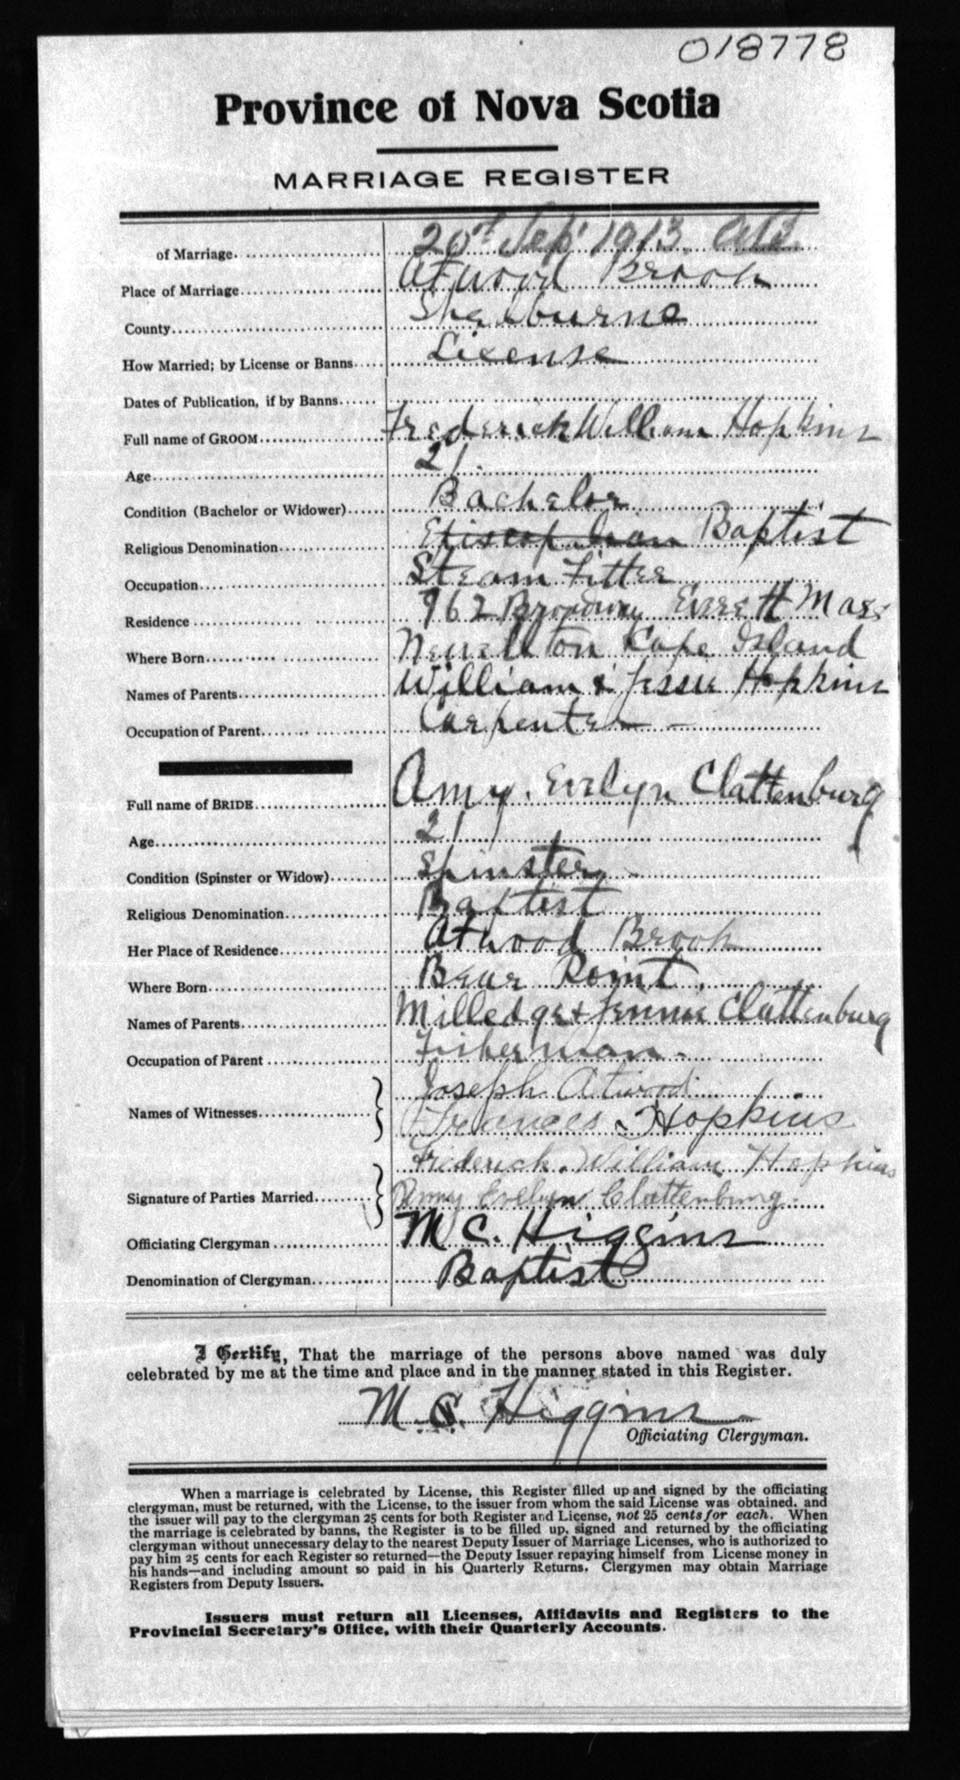 018778
Province of Nova Scotia
MARRIAGE REGISTER
of Marriage 20th Sep 1913
Place of Marriage Atwood Brook
County Shelburne
How Married; by License or Banns License
Dates of Publication, if by Banns
Full name of GROOM Frederick William Hopkins
Age 21
Condition (Bachelor or Widower) Bachelor
Religious Denomination Episcopalian Baptist
Occupation Steam Fitter
Residence 962 Broadway Everett Mass
Where Born Newellton Cape Island
Names of Parents William & Jessie Hopkins
Occupation of Parent Carpenter
Full name of BRIDE Amy. Evelyn Clattenburg
Age 21
Condition (Spinster or Widow) Spinster
Religious Denomination Baptist
Her Place of Residence Atwood Brook
Where Born Bear Point.
Names of Parents Milledge & Jennie Clattenburg
Occupation of Parent Fisherman
Joseph Atwood
Names of Witnesses Frances Hopkins
Frederick William Hopkins
Signature of Parties Married Amy Evelyn Clattenburg
Officiating Clergyman M C. Higgins
Denomination of Clergyman Baptist
I Certify, That the marriage of the persons above named was duly
celebrated by me at the time and place and in the manner stated in this Register.
M. C. Higgins
Officiating Clergyman.
When a marriage is celebrated by License, this Register filled up and signed by the officiating
clergyman, must be returned, with the License, to the issuer from whom the said License was obtained, and
the issuer will pay to the clergyman 25 cents for both Register and License, not 25 cents for each. When
the marriage is celebrated by banns, the Register is to be filled up, signed and returned by the officiating
clergyman without unnecessary delay to the nearest Deputy Issuer of Marriage Licenses, who is authorized to
pay him 25 cents for each Register so returned—the Deputy Issuer repaying himself from License money in
his hands—and including amount so paid in his Quarterly Returns. Clergymen may obtain Marriage
Registers from Deputy Issuers.
Issuers must return all Licenses, Affidavits and Registers to the
Provincial Secretary's Office, with their Quarterly Accounts.